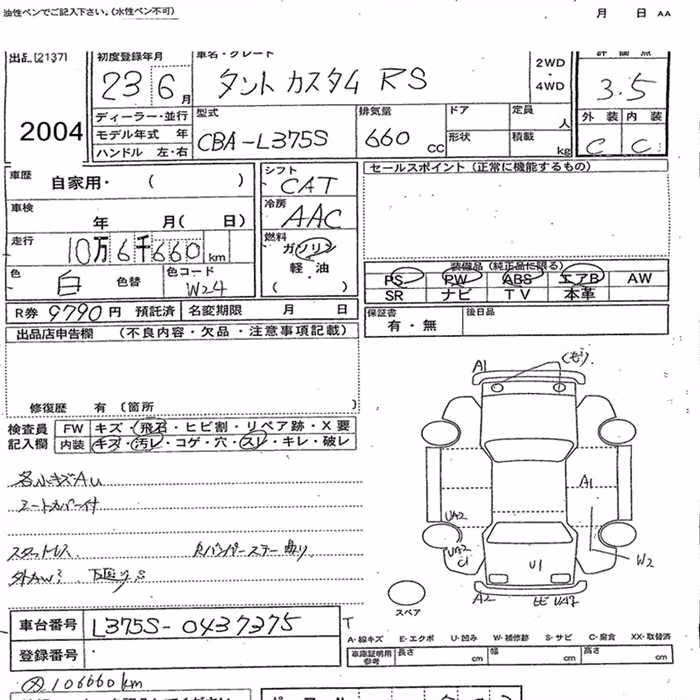 油性ペンでご記入下さい。(水性ペン不可) 月 日 AA
出品 (2137)
2004
初度登録年月 23 6月
車名・グレード タント カスタム RS
2WD・4WD
評価点 3.5
ディーラー・並行
モデル年式 年
ハンドル 左・右
型式 CBA-L375S
排気量 660 CC
ドア 定員 人
形状 積載 kg
外装 内装
C C
車歴 自家用・ ( )
車検 年 月( 日)
走行 10万6千660 km
色 白 色替 色コード W24
シフト CAT
冷房 AAC
燃料 ガソリン
軽・油
( )
セールスポイント (正常に機能するもの)
装備品 (純正品に限る)
PS PW ABS エアB AW
SR ナビ TV 本革
R券 9790 円 預託済 名変期限 月 日
保証書 有・無 後日品
出品店申告欄 (不良内容・欠品・注意事項記載)
修復歴 有 (箇所 )
検査員記入欄
FW キズ・飛石・ヒビ割・リペア跡・X要
内装 キズ・汚レ・コゲ・穴・スレ・キレ・破レ
各小キズAU
シートカバー付
スタットレス
A1
A1
UA2
UA2
C1
W2
U1
A2
スペア
車台番号 L375S-0437375
登録番号
T
A-線キズ E-エクボ U-凹み W-補修跡 S-サビ C-腐食 XX-取替済
車庫証明用参考 長さ cm 幅 cm 高さ cm
106660km